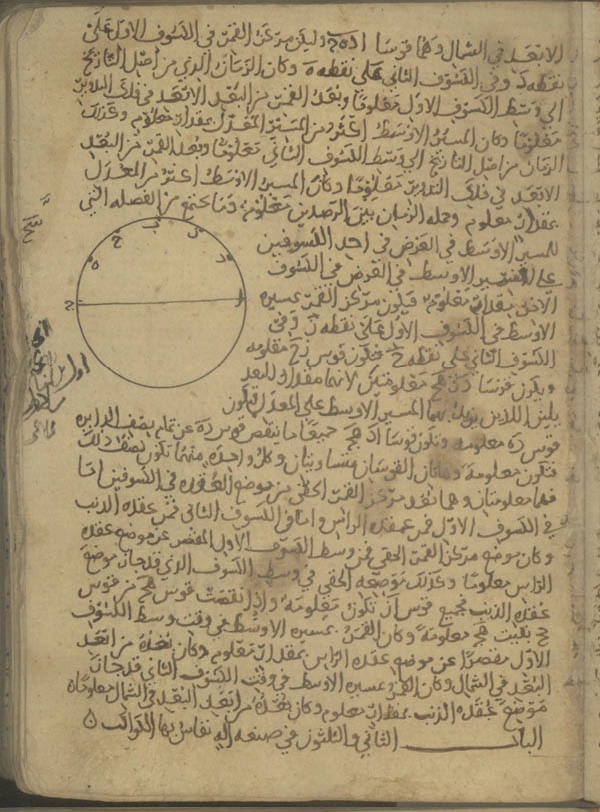 الابعد في الشمال وهما قوسا ا د ه ج وليكن مركز القمر في الكسوف الاول على
نقطه د وفي الكسوف الثاني على نقطه ه وكان الزمان الذي من اصل التاريخ
الي وسط الكسوف الاول معلوما وبعد القمر من البعد الابعد في فلك التدوير
معلوما وكان المسير الاوسط اكثر من المسير المعدل بمقدار معلوم وكذلك
الزمان من اصل التاريخ الي وسط الكسوف الثاني معلوما وبعد القمر من البعد
الابعد في فلك التدوير معلوما وكان المسير الاوسط اكثر من المعدل
بمقدار معلوم وجمله الزمان بين الرصدين معلومه وما يجتمع من الفضله التي
للمسير الاوسط في العرض في احد الكسوفين
على المسير الاوسط في العرض في الكسوف
الاخر بمقدار معلوم فيكون مركز القمر بمسيره
الاوسط في الكسوف الاول على نقطه ز وفي
الكسوف الثاني على نقطه ح فتكون قوس زح معلومه
ويكون قوسا دز هح معلومتين لانهما مقدار البعد
اللذين يزيد بهما المسير الاوسط على المعدل فتكون
قوس ده معلومه وتكون قوسا اد هج جميعا ما ينقص قوس ده عن تمام نصف الدايره
فتكون معلومه وهاتان القوسان متساويتان وكل واحده منهما تكون نصف ذلك
فهما معلومتان وهما بعد مركز القمر الحقي من موضع العقده في الكسوفين اما
في الكسوف الاول فمن عقده الراس واما في الكسوف الثاني فمن عقده الذنب
وكان موضع مركز القمر الحقي في وسط الكسوف الاول المقصر عن موضع عقده
الراس معلوما وكذلك موضعه الحقي في وسط الكسوف الذي قد جاز موضع
عقده الذنب فجميع قوس از تكون معلومه واذا نقصت قوس هج من قوس
ح بقيت هج معلومه وكان القمر بمسيره الاوسط في وقت وسط الكسوف
الاول مقصرا عن موضع عقده الراس بمقدار معلوم وكان بعده من ابعد
البعد في الشمال وكان القمر بمسيره الاوسط في وقت الكسوف الثاني قد جاز
موضع عقده الذنب بمقدار معلوم وكان بعده من ابعد البعد في الشمال معلوما
الباب الثاني والثلثون في صنعه اله تقاس بها الكواكب